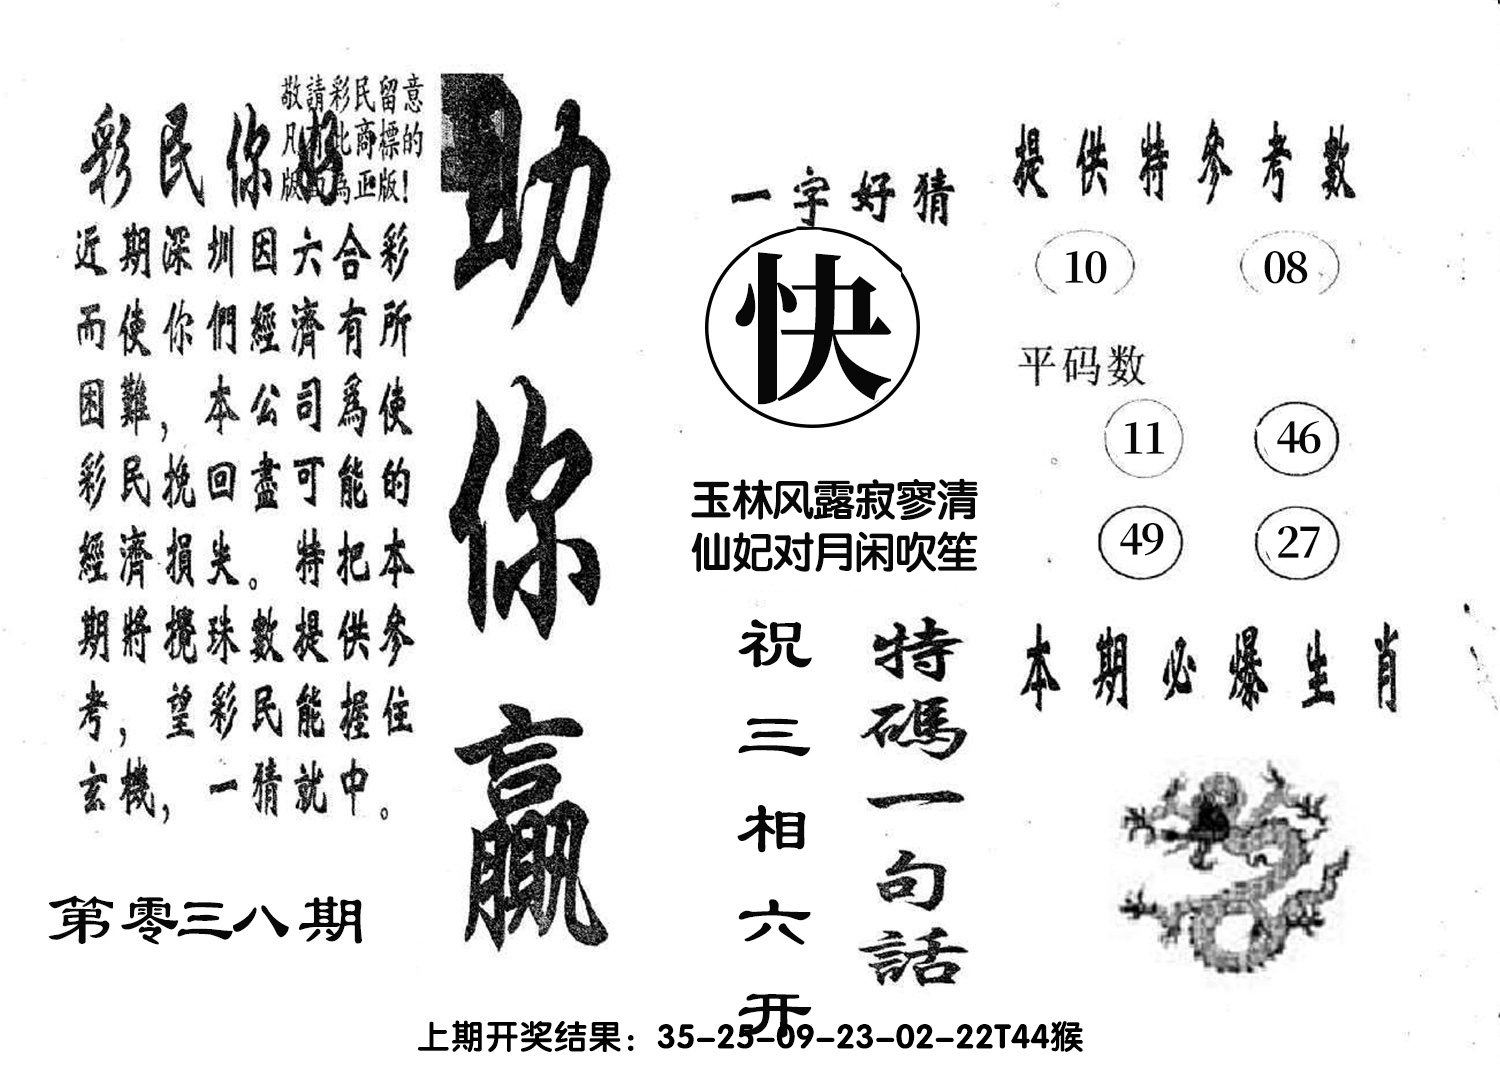 敬請彩民留意
凡有此商標的
版面為正版！
彩民你好
近期深圳因六合彩
而使你們經濟有所
困難，本公司爲使
彩民挽回盡可能的
經濟損失。特把本
期將攪珠數提供參
考，望彩民能握住
玄機，一猜就中。
第零三八期
助你贏
一字好猜
快
玉林风露寂寥清
仙妃对月闲吹笙
特碼一句話
祝三相六开
提供特參考數
10 08
平码数
11 46
49 27
本期必爆生肖
上期开奖结果：35-25-09-23-02-22T44猴